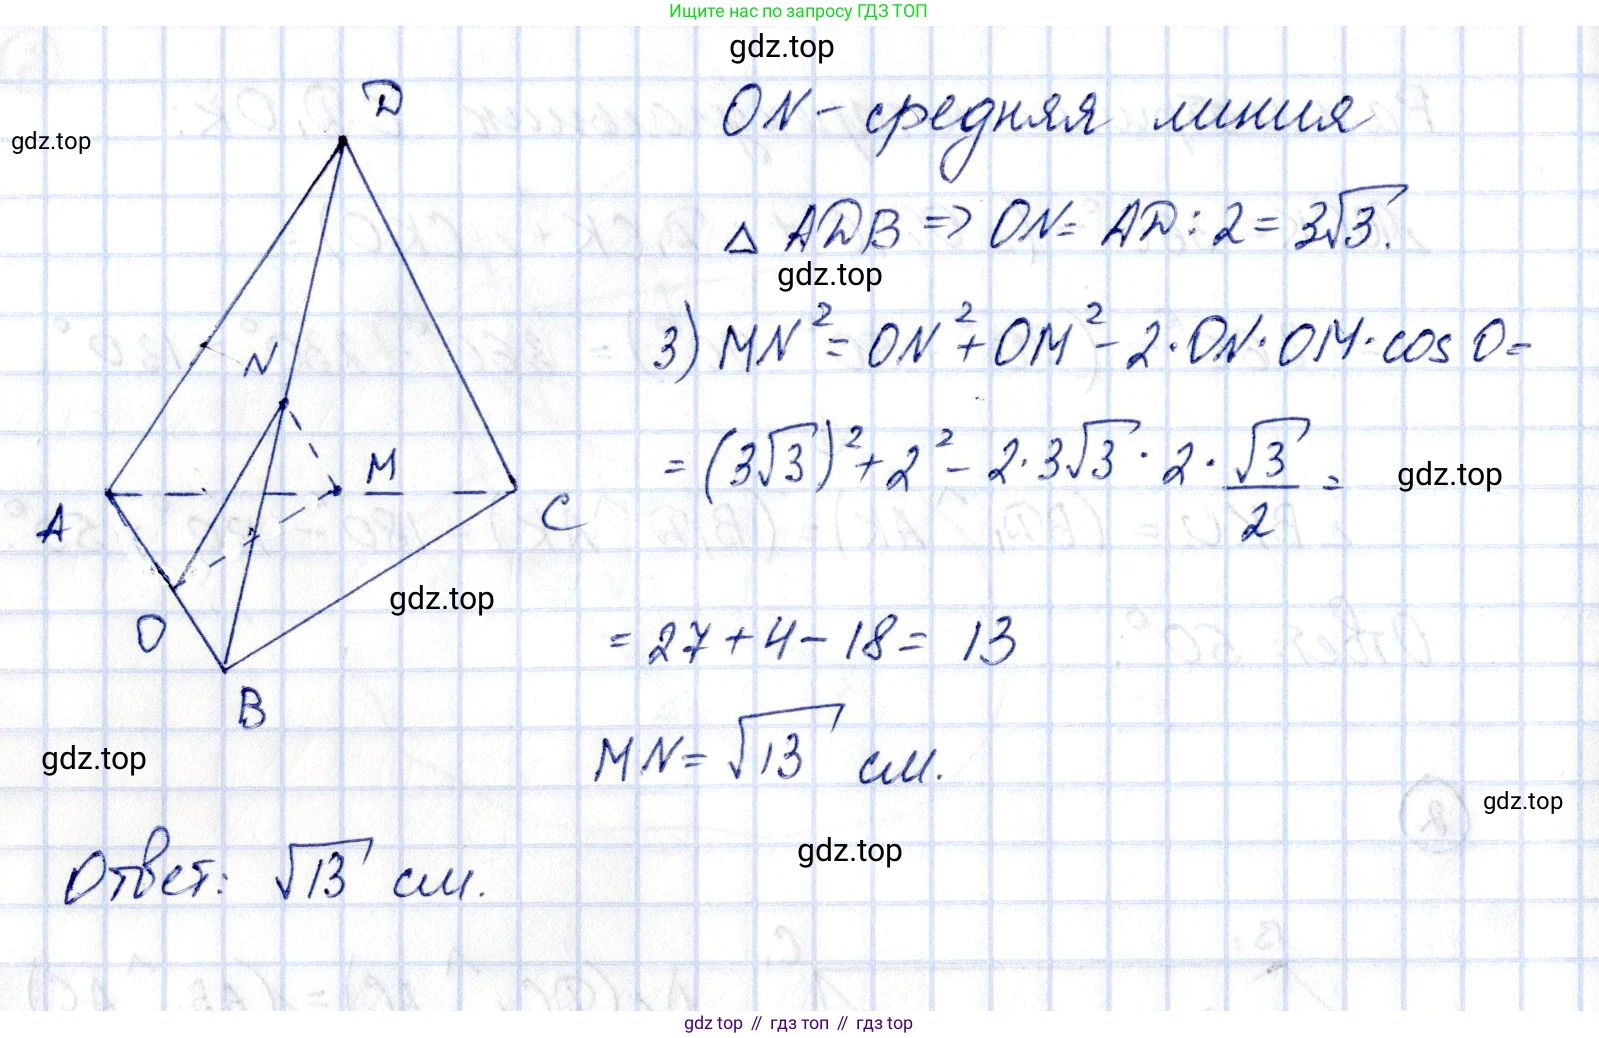 Ищите нас по запросу ГДЗ ТОП
gdz.top
D
gdz.top
ON - средняя линия
△ ADB => ON = AD : 2 = 3√3.
gdz.top
3) MN² = ON² + OM² - 2·ON·OM·cos O =
N
= (3√3)² + 2² - 2·3√3·2·√3/2 =
gdz.top
M
A
C
gdz.top
O
= 27 + 4 - 18 = 13
B
MN = √13 см.
gdz.top
gdz.top
Ответ: √13 см.
gdz.top
gdz top // гдз топ // гдз top